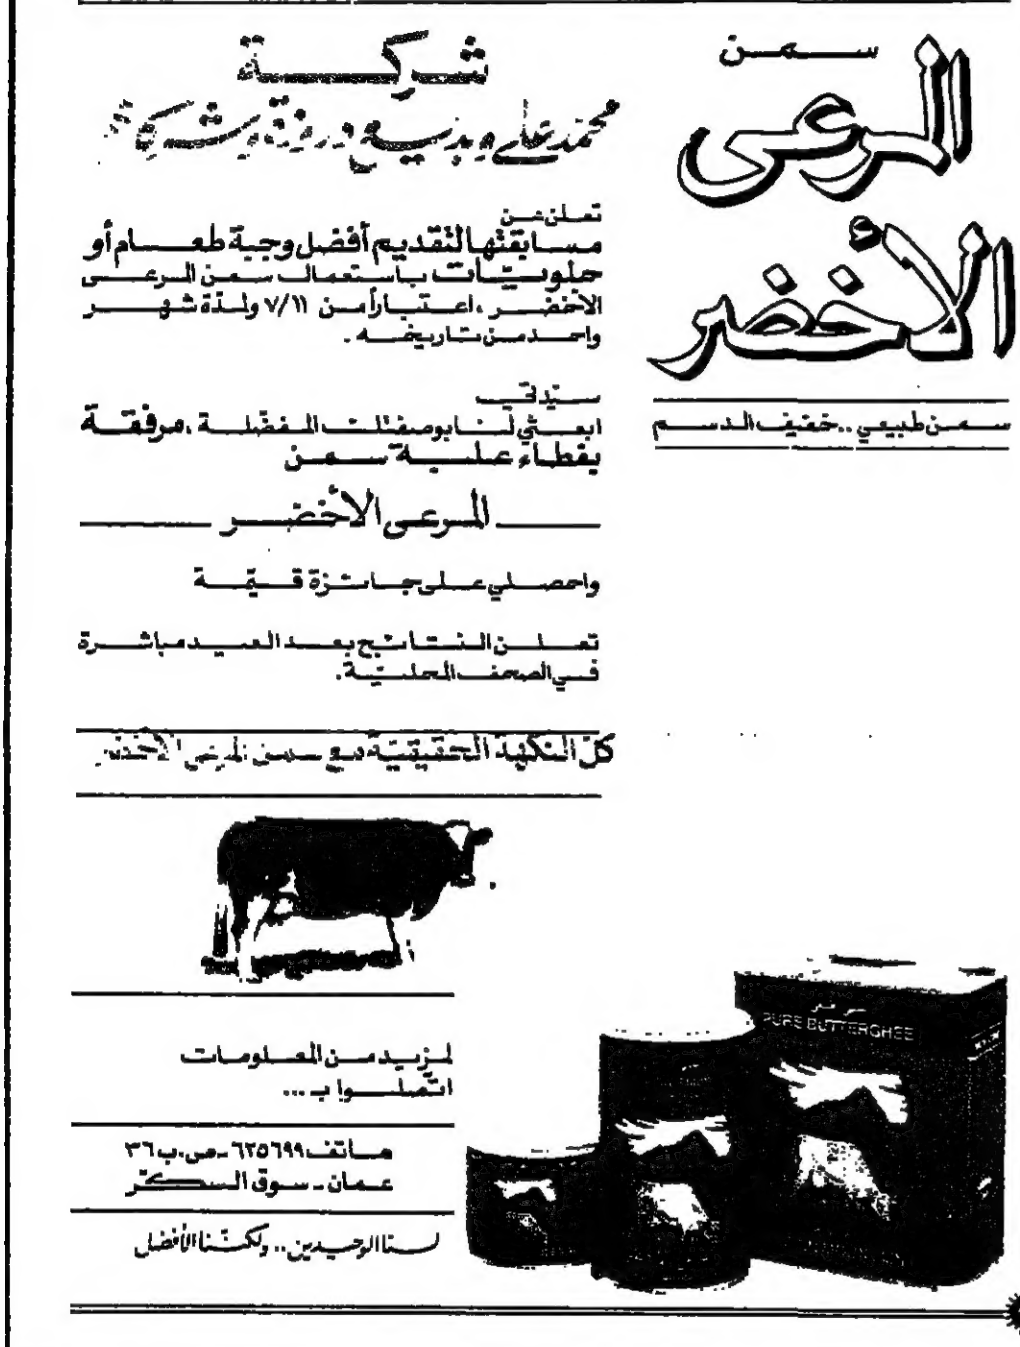 سمن
المرعى
الأخضر
سمن طبيعي .. خفيف الدسم
شركة
محمد علي وبديع دروزة وشركاهم
تعلن عن
مسابقتها لتقديم أفضل وجبة طعام أو
حلويات باستعمال سمن المرعى
الأخضر ، اعتباراً من ٧/١١ ولمدة شهر
واحد من تاريخه .
سيدتي
ابعثي لنا بوصفتك المفضلة ، مرفقة
بغطاء علبة سمن
المرعى الأخضر
واحصلي على جائزة قيّمة
تعلن النتائج بعد العيد مباشرة
في الصحف المحليّة .
كل النكهة الحقيقيّة مع سمن المرعى الأخضر
PURE BUTTERGHEE
لمزيد من المعلومات
اتّصلوا بـ ...
هاتف ٦٢٥٦٩٩ - ص.ب ٣٦
عمان - سوق السكّر
لسنا الوحيدين .. ولكنّنا الأفضل